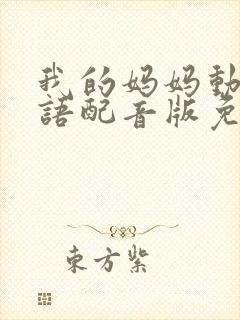 我的妈妈動
語配音版免
東方紫